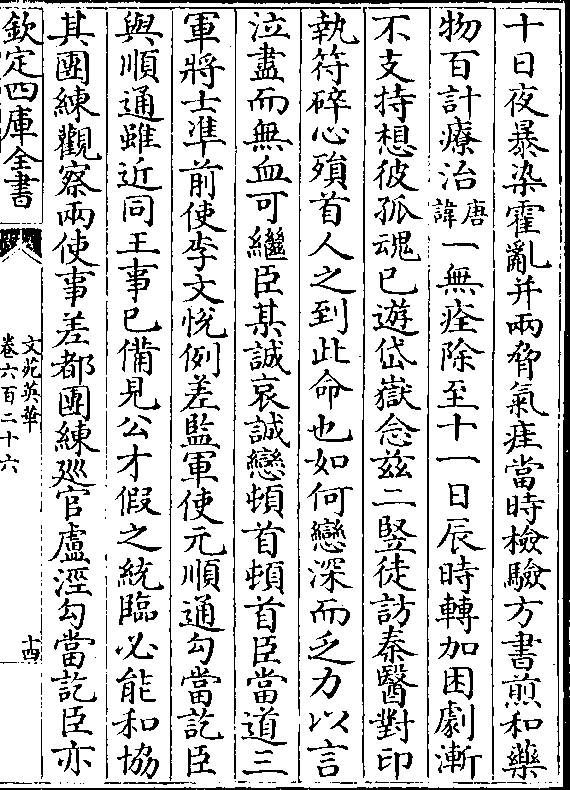 十日夜暴染霍亂并兩脅氣疰當時檢驗方書煎和藥
物百計療治唐諱一無痊除至十一日辰時轉加困劇漸
不支持想彼孤魂已遊岱嶽念兹二竪徒訪秦醫對印
執符碎心殞首人之到此命也如何戀深而乏力以言
泣盡而無血可繼臣某誠哀誠戀頓首頓首臣當道三
軍將士準前使李文悅例差監軍使元順通勾當訖臣
與順通雖近同王事已備見公才假之統臨必能和協
其團練觀察兩使事差都團練廵官盧涇勾當訖臣亦
欽定四庫全書
文苑英華
卷六百二十六
十四